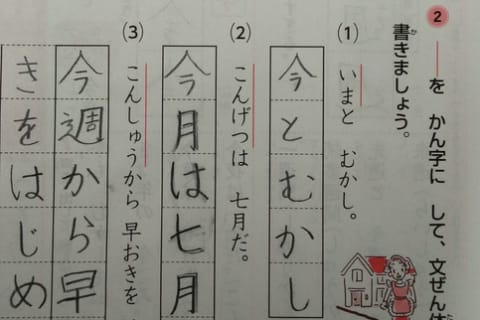 2 ――を かん字に して、文ぜん
書きましょう。
(1) いまと むかし。
今とむかし
(2) こんげつは 七月だ。
今月は七月
(3) こんしゅうから 早おきを
今週から早
きをはじめ